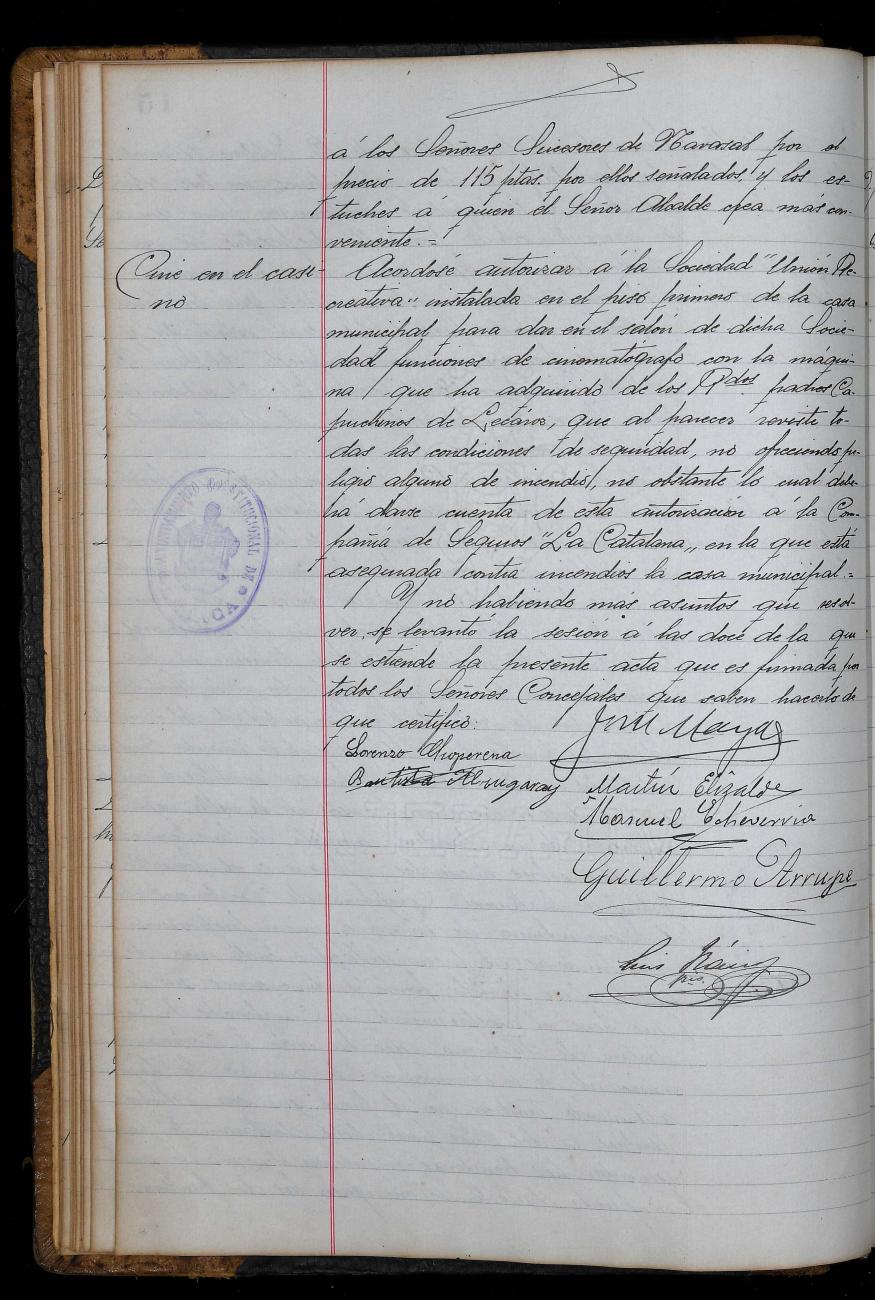 á los Señores Sucesores de Narasal por el
precio de 115 ptas. por ellos señalados, y los es-
tuches á quien el Señor Alcalde crea más con-
veniente.=
Cine en el casi-
no
Acordóse autorizar á la Sociedad "Unión Re-
creativa" instalada en el piso primero de la casa
municipal para dar en el salón de dicha Socie-
dad funciones de cinematógrafo con la máqui-
na que ha adquirido de los Rdos padres Ca-
puchinos de Lecároz, que al parecer reviste to-
das las condiciones de seguridad, no ofreciendo pe-
ligro alguno de incendio, no obstante lo cual debe-
rá darse cuenta de esta autorización á la Com-
pañía de Seguros "La Catalana,, en la que está
asegurada contra incendios la casa municipal.=
Y no habiendo más asuntos que resol-
ver, se levantó la sesión á las doce de la que
se estiende la presente acta que es firmada por
todos los Señores Concejales que saben hacerlo de
que certifico:
Maya
Lorenzo Choperena
Bautista
Martín Elizalde
Manuel Echeverria
Guillermo Arrupe
Luis
AYUNTAMIENTO CONSTITUCIONAL DE